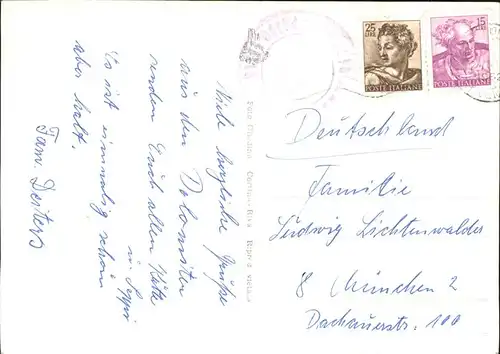 Viele herzliche Grüße
aus den Dolomiten
senden Euch allen Käte
u. Seppi
Es ist einmalig schön
aber kalt.
Fam. Denters
Riva
25
LIRE
POSTE ITALIANE
15
LIRE
POSTE ITALIANE
Deutschland
Familie
Ludwig Lichtenwalder
8 München 2
Dachauerstr. 100